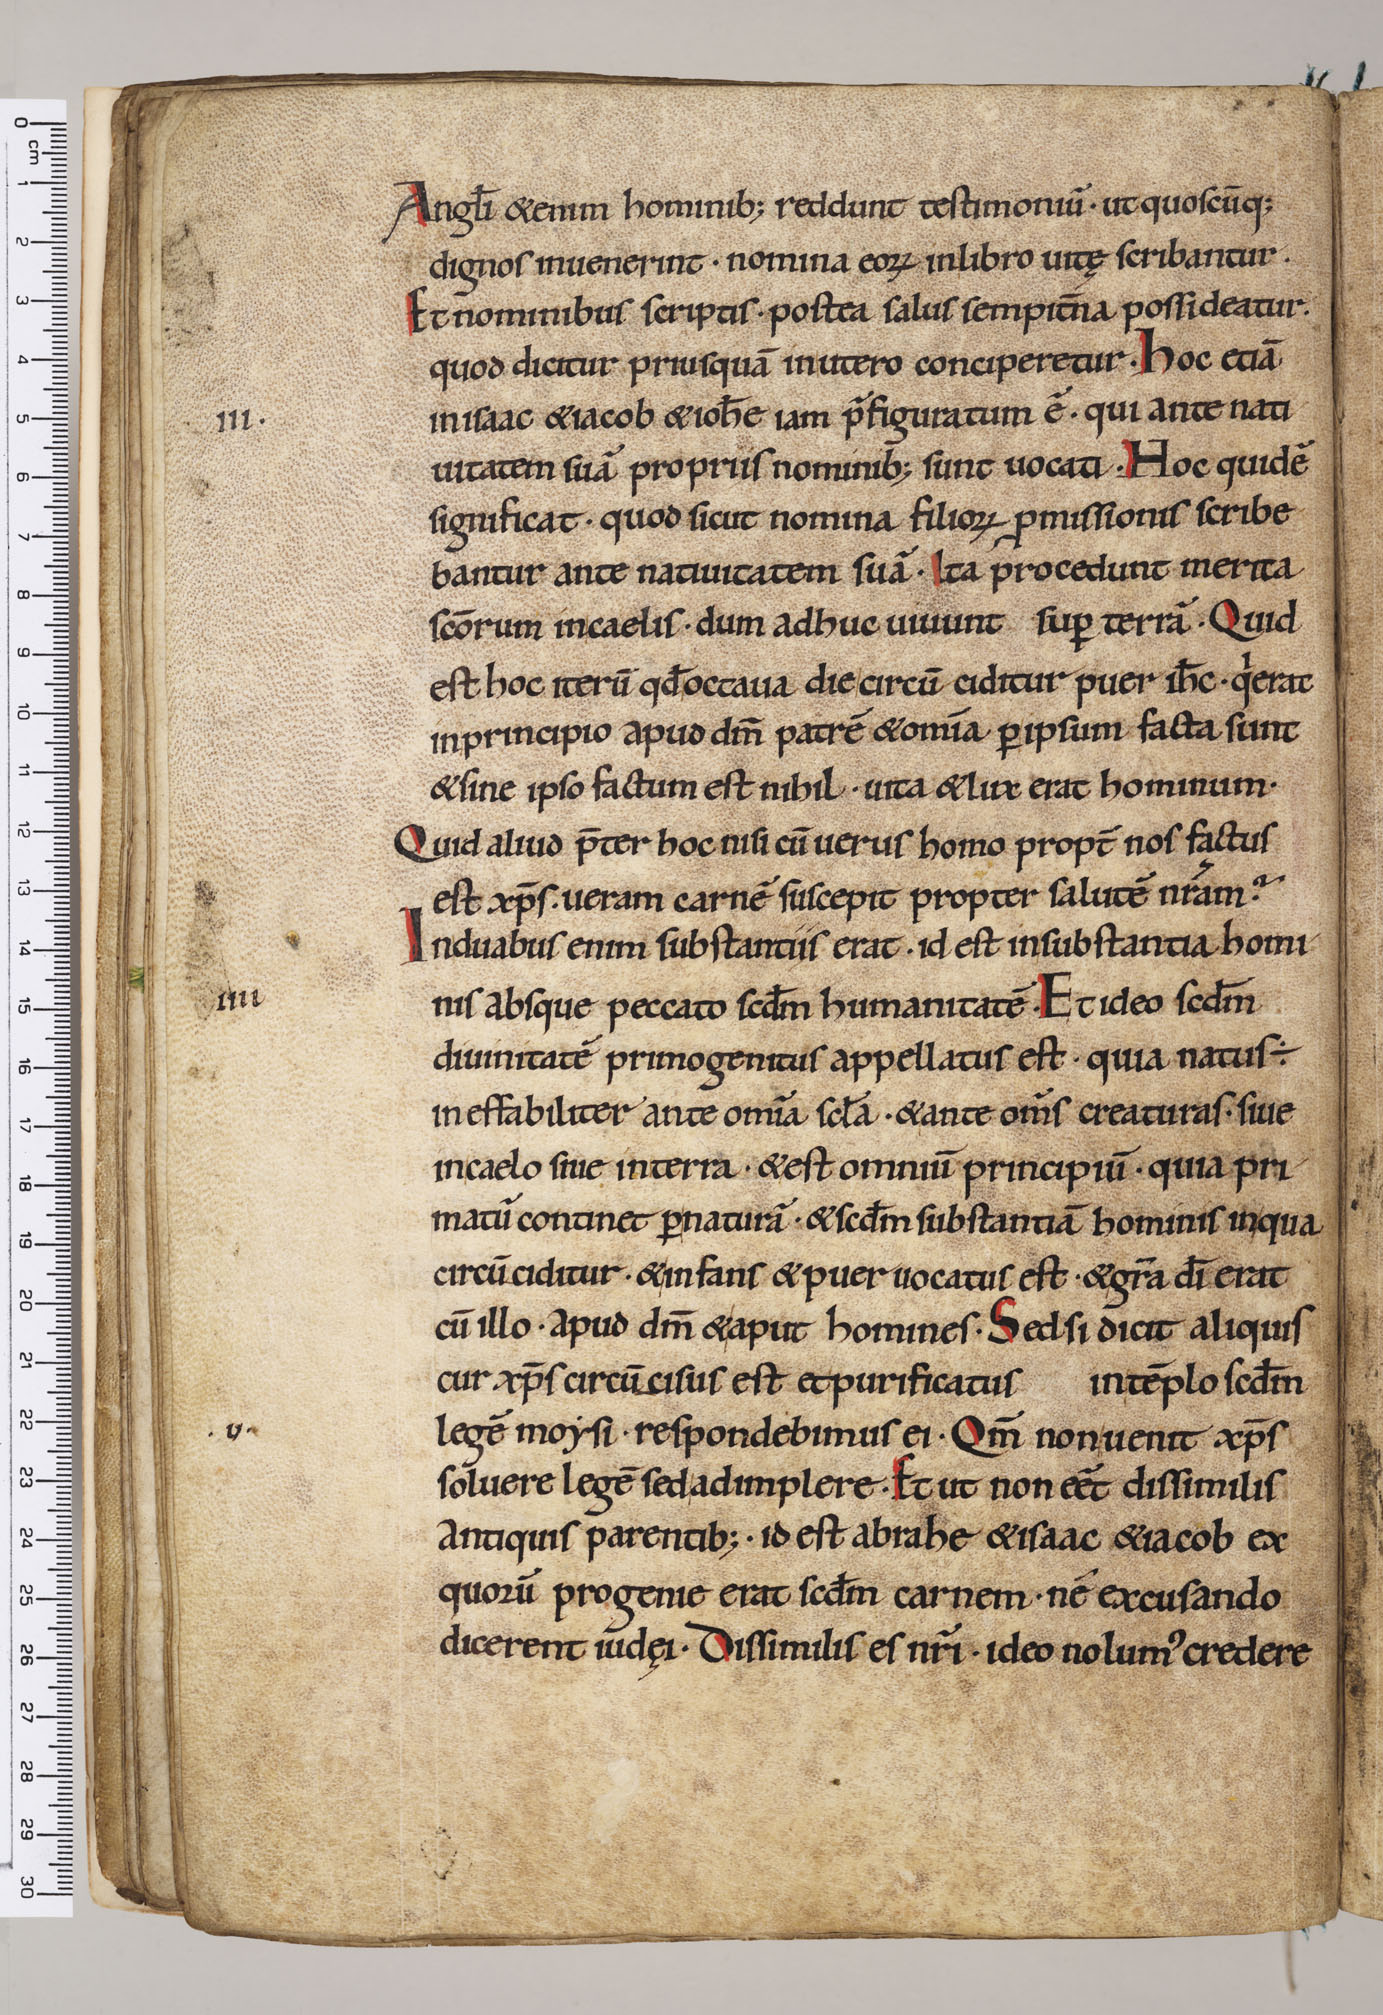 Angl̄i &enim hominib; reddunt testimoniū · ut quoscūq;
dignos inuenerint · nomina eoꝝ inlibro uitę scribantur .
Et nominibus scriptis · postea salus sempit̄na possideatur.
quod dicitur priusquā inutero conciperetur . Hoc etiā
III.
inisaac &iacob &ioh̄e iam p̄figuratum ē · qui ante nati
uitatem suā propriis nominib; sunt uocati . Hoc quidē
significat · quod sicut nomina filioꝝ ꝓmissionis scribe
bantur ante natiuitatem suā · Ita p̄rocedunt merita
scōrum incaelis · dum adhuc uiuunt suꝑ terrā · Quid
est hoc iterū qd̄ octaua die circū ciditur puer ih̄c · q̇ erat
inprincipio apud dm̄ patrē &omīa ꝑipsum facta sunt
&sine ipso factum est nihil · uita &lux erat hominum ·
Quid aliud p̄ter hoc nisi cū uerus homo propt̄ nos factus
est xp̄s . ueram carnē suscepit propter salutē nr̄am .
Induabus enim substantiis erat · id est insubstantia homi
IIII
nis absque peccato scd̄m humanitatē . Et ideo scd̄m
diuinitatē primogenitus appellatus est · quia natus ÷
ineffabiliter ante omīa scl̄a · &ante om̄s creaturas · siue
incaelo siue interra · &est omniū principiū · quia pri
matū continet ꝑnaturā · &scd̄m substantiā hominis inqua
circūciditur · &infans &puer uocatus est · &gr̄a dī erat
cū illo · apud dm̄ &aput homines · Sed si dicit aliquis
cur xp̄s circūcisus est et purificatus intēplo scd̄m
· v ·
legē moysi · respondebimus ei · Qm̄ non uenit xp̄s
soluere legē sed adimplere . Et ut non eēt dissimilis
antiquis parentib; · id est abrahe &isaac &iacob ex
quorū progenie erat scd̄m carnem · nē excusando
dicerent iudęi · Dissimilis es nr̄i · ideo nolumꝰ credere